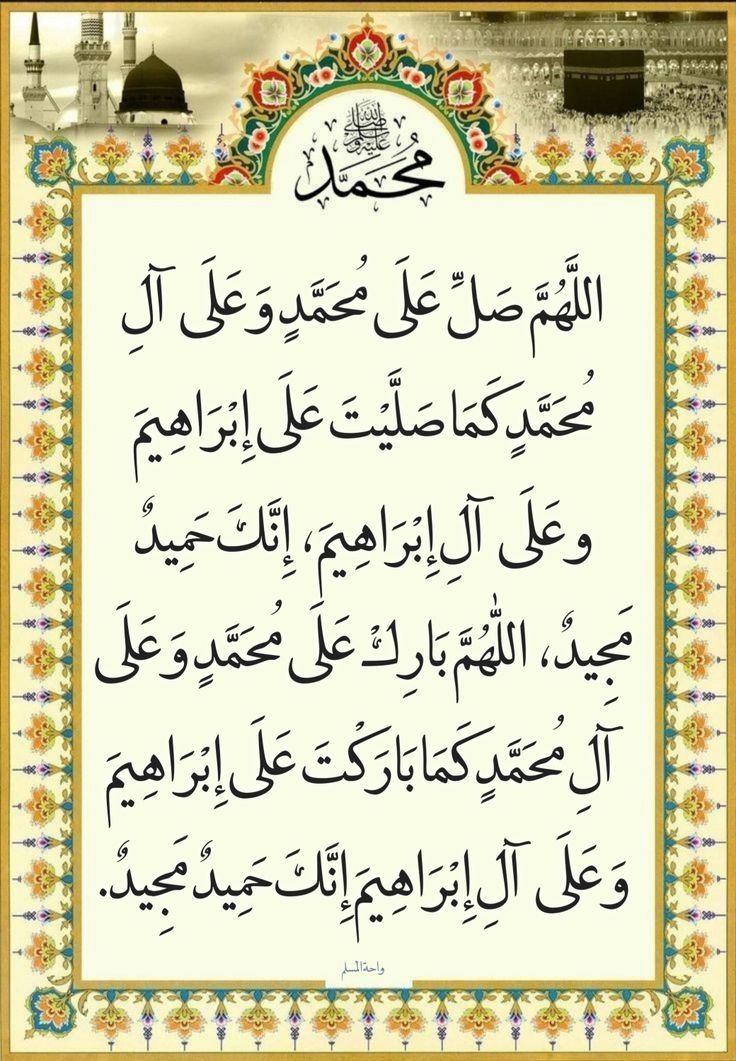 صلى الله عليه وسلم
محمد
اللَّهُمَّ صَلِّ عَلَى مُحَمَّدٍ وَعَلَى آلِ
مُحَمَّدٍ كَمَا صَلَّيْتَ عَلَى إِبْرَاهِيمَ
وعَلَى آلِ إِبْرَاهِيمَ، إِنَّكَ حَمِيدٌ
مَجِيدٌ، اللَّهُمَّ بَارِكْ عَلَى مُحَمَّدٍ وَعَلَى
آلِ مُحَمَّدٍ كَمَا بَارَكْتَ عَلَى إِبْرَاهِيمَ
وَعَلَى آلِ إِبْرَاهِيمَ إِنَّكَ حَمِيدٌ مَجِيدٌ.
واحة المسلم